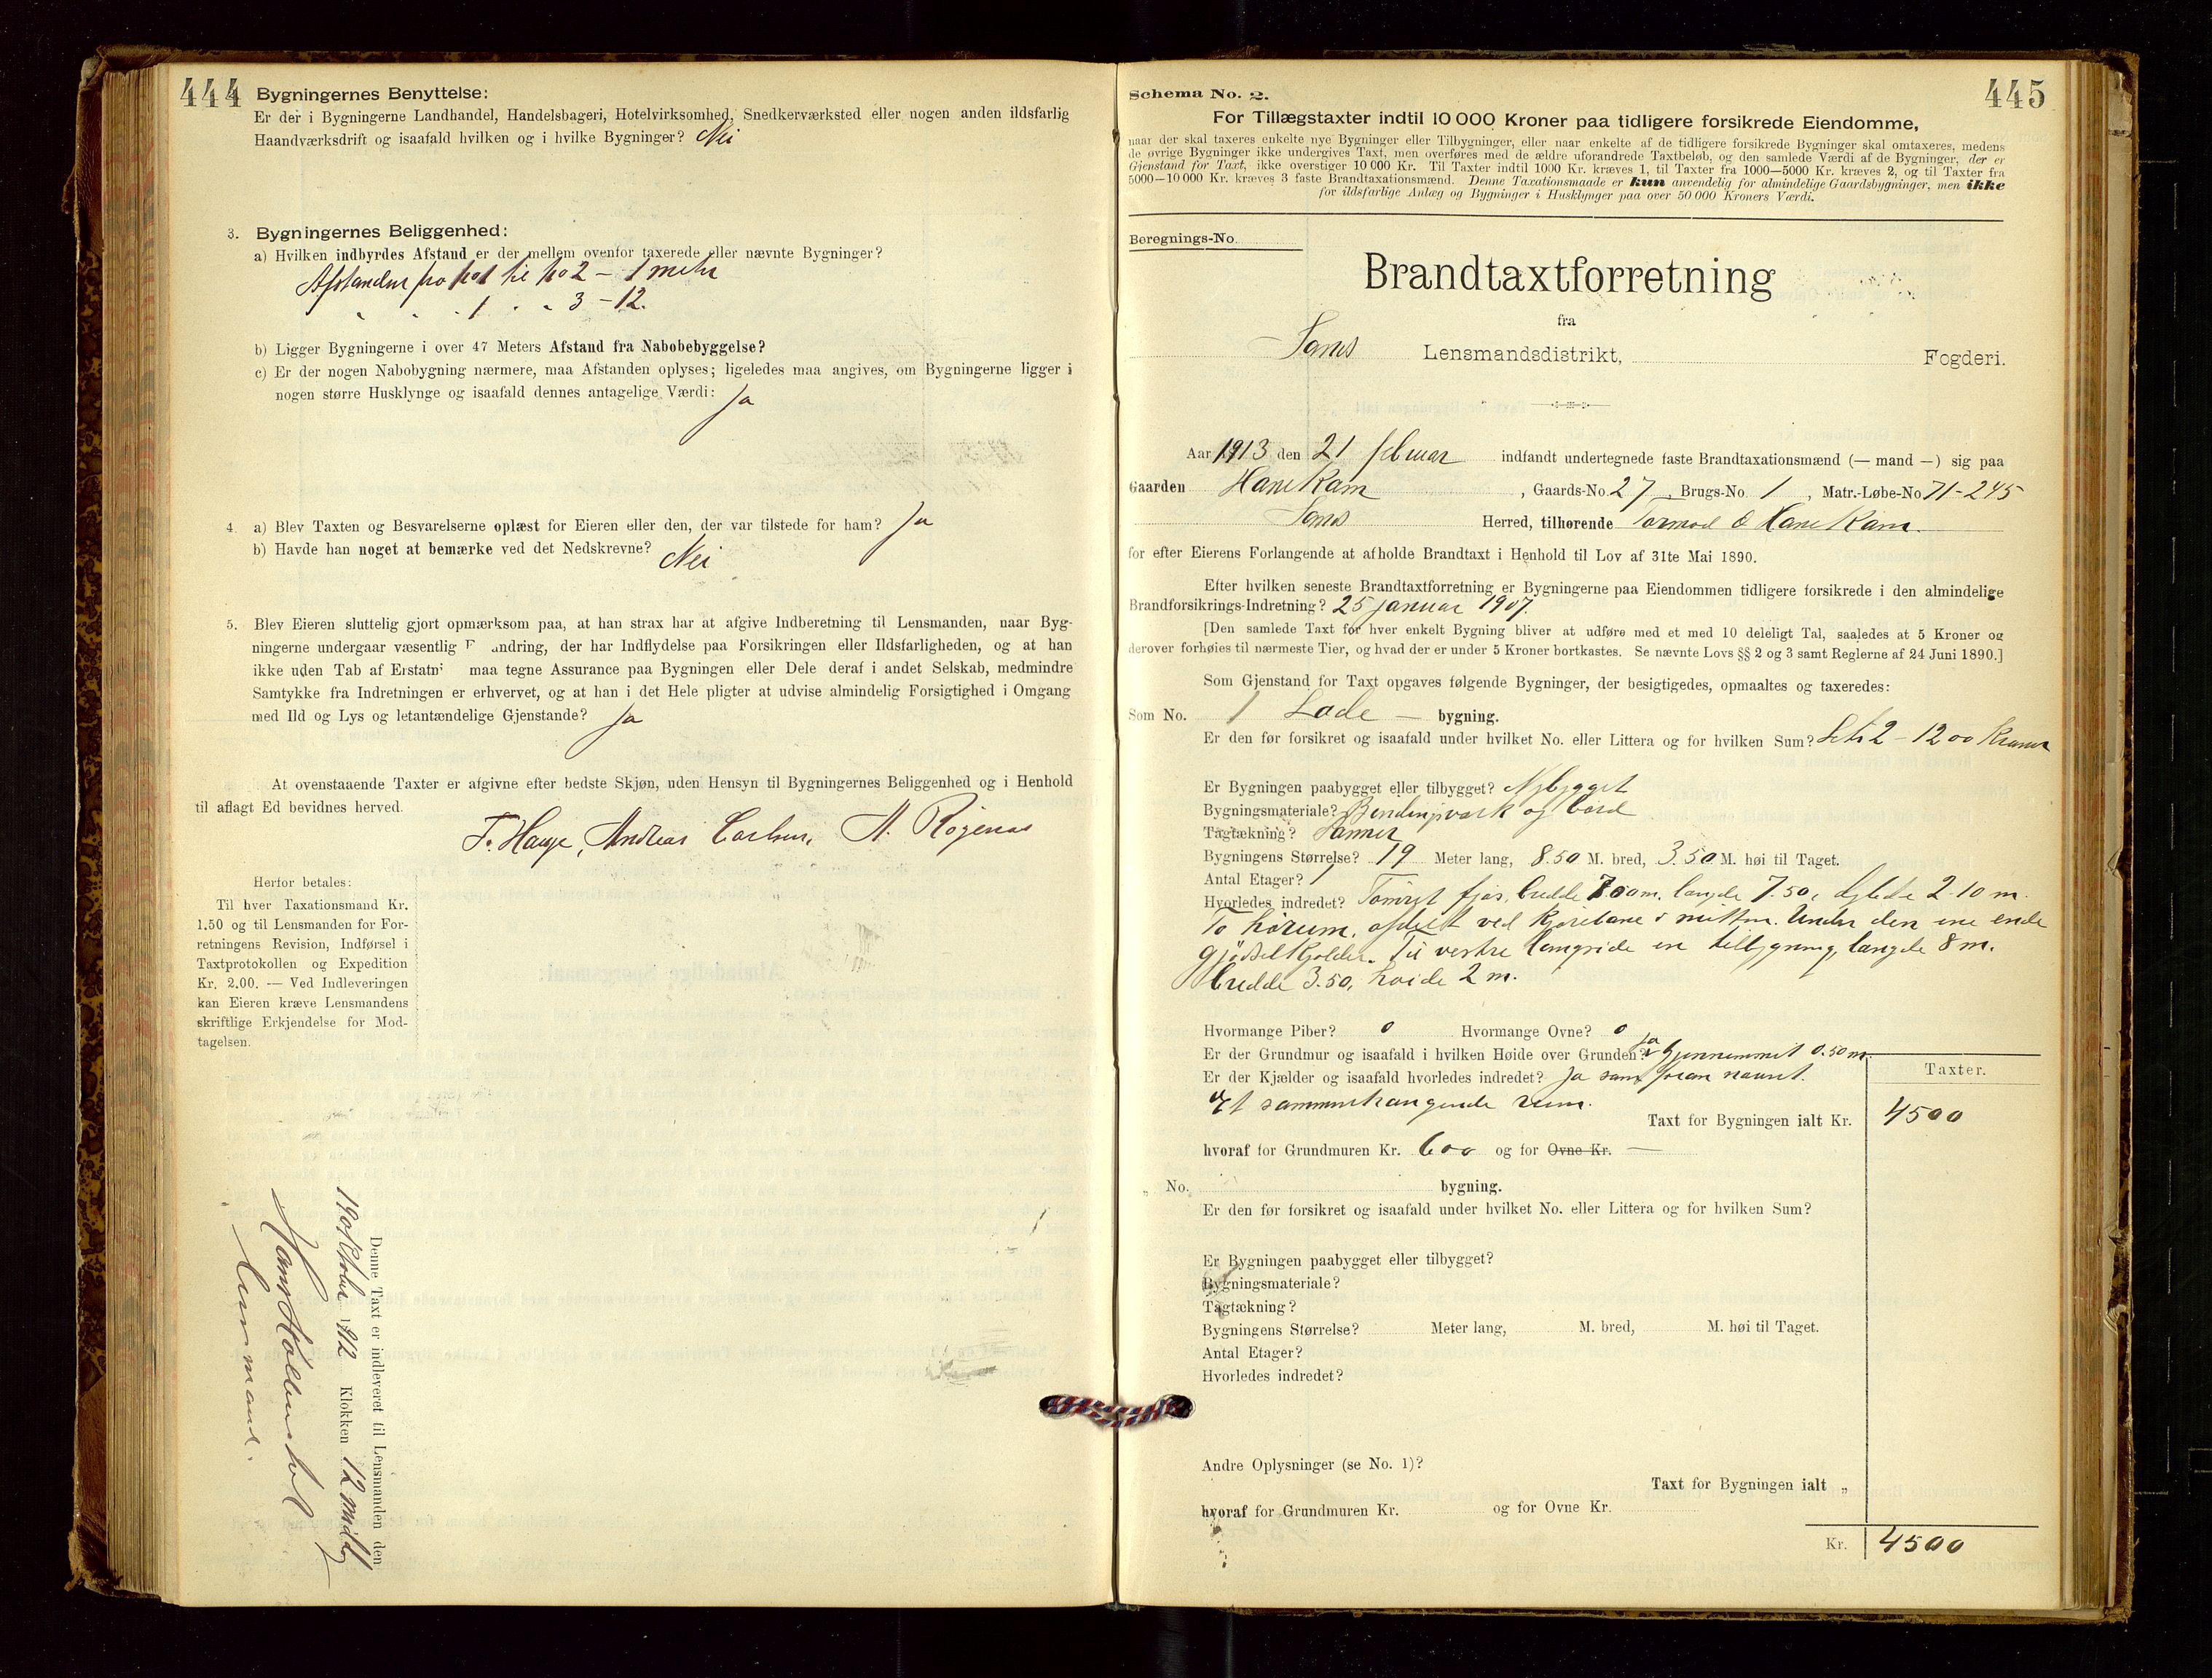 444
Bygningernes Benyttelse:
Er der i Bygningerne Landhandel, Handelsbageri, Hotelvirksomhed, Snedkerværksted eller nogen anden ildsfarlig
Haandværksdrift og isaafald hvilken og i hvilke Bygninger? Nei
3. Bygningernes Beliggenhed:
a) Hvilken indbyrdes Afstand er der mellem ovenfor taxerede eller nævnte Bygninger?
Afstanden fra No1 til No2 – 1 meter
" " " 1 " " 3 – 12.
b) Ligger Bygningerne i over 47 Meters Afstand fra Nabobebyggelse?
c) Er der nogen Nabobygning nærmere, maa Afstanden oplyses; ligeledes maa angives, om Bygningerne ligger i
nogen større Husklynge og isaafald dennes antagelige Værdi: Ja
4. a) Blev Taxten og Besvarelserne oplæst for Eieren eller den, der var tilstede for ham? Ja
b) Havde han noget at bemærke ved det Nedskrevne? Nei
5. Blev Eieren sluttelig gjort opmærksom paa, at han strax har at afgive Indberetning til Lensmanden, naar Byg-
ningerne undergaar væsentlig F andring, der har Indflydelse paa Forsikringen eller Ildsfarligheden, og at han
ikke uden Tab af Erstatni maa tegne Assurance paa Bygningen eller Dele deraf i andet Selskab, medmindre
Samtykke fra Indretningen er erhvervet, og at han i det Hele pligter at udvise almindelig Forsigtighed i Omgang
med Ild og Lys og letantændelige Gjenstande? Ja
At ovenstaaende Taxter er afgivne efter bedste Skjøn, uden Hensyn til Bygningernes Beliggenhed og i Henhold
til aflagt Ed bevidnes herved.
T. Hauge, Andreas Carlsen, A. Rogenas
Herfor betales:
Til hver Taxationsmand Kr.
1.50 og til Lensmanden for For-
retningens Revision, Indførsel i
Taxtprotokollen og Expedition
Kr. 2.00. — Ved Indleveringen
kan Eieren kræve Lensmandens
skriftlige Erkjendelse for Mod-
tagelsen.
Denne Taxt er indleveret til Lensmanden den
19 oktober 1912 Klokken 12 middg
Hans
lensmand.
445
Schema No. 2.
For Tillægstaxter indtil 10 000 Kroner paa tidligere forsikrede Eiendomme,
naar der skal taxeres enkelte nye Bygninger eller Tilbygninger, eller naar enkelte af de tidligere forsikrede Bygninger skal omtaxeres, medens
de øvrige Bygninger ikke undergives Taxt, men overføres med de ældre uforandrede Taxtbeløb, og den samlede Værdi af de Bygninger, der er
Gjenstand for Taxt, ikke overstiger 10 000 Kr. Til Taxter indtil 1000 Kr. kræves 1, til Taxter fra 1000—5000 Kr. kræves 2, og til Taxter fra
5000—10 000 Kr. kræves 3 faste Brandtaxationsmænd. Denne Taxationsmaade er kun anvendelig for almindelige Gaardsbygninger, men ikke
for ildsfarlige Anlæg og Bygninger i Husklynger paa over 50 000 Kroners Værdi.
Beregnings-No.
Brandtaxtforretning
fra
Lensmandsdistrikt, Fogderi.
Aar 1913 den 21 februar indfandt undertegnede faste Brandtaxationsmænd (— mand —) sig paa
Gaarden Hane Kam, Gaards-No. 27, Brugs-No. 1, Matr.-Løbe-No 71-245
Herred, tilhørende Tormod O Hane Kam.
for efter Eierens Forlangende at afholde Brandtaxt i Henhold til Lov af 31te Mai 1890.
Efter hvilken seneste Brandtaxtforretning er Bygningerne paa Eiendommen tidligere forsikrede i den almindelige
Brandforsikrings-Indretning? 25 januar 1907.
[Den samlede Taxt for hver enkelt Bygning bliver at udføre med et med 10 deleligt Tal, saaledes at 5 Kroner og
derover forhøies til nærmeste Tier, og hvad der er under 5 Kroner bortkastes. Se nævnte Lovs §§ 2 og 3 samt Reglerne af 24 Juni 1890.]
Som Gjenstand for Taxt opgaves følgende Bygninger, der besigtigedes, opmaaltes og taxeredes:
Som No. 1 Lade — bygning.
Er den før forsikret og isaafald under hvilket No. eller Littera og for hvilken Sum? 2 – 1200 Kroner
Er Bygningen paabygget eller tilbygget? Nybygget
Bygningsmateriale? Bendingsværk og bord
Tagtækning? Panner
Bygningens Størrelse? 19 Meter lang, 8.50 M. bred, 3.50 M. høi til Taget.
Antal Etager? 1
Hvorledes indredet? Tømret fjøs, bredde 7.00m, længde 7.50, dybde 2.10 m.
To hørum, afdelt ved kjørebane i mitten. Under den ene ende
gjødselkjelder. Til vestre langside en tilbygning, længde 8 m.
bredde 3.50, høide 2 m.
Hvormange Piber? 0 Hvormange Ovne? 0
Er der Grundmur og isaafald i hvilken Høide over Grunden? Ja gjennemsnit 0.50 m.
Er der Kjælder og isaafald hvorledes indredet? Ja som foran nævnt.
Et sammenhængende rum.
Taxter.
Taxt for Bygningen ialt Kr. 4500
hvoraf for Grundmuren Kr. 600 og for Ovne Kr. —
" No. bygning.
Er den før forsikret og isaafald under hvilket No. eller Littera og for hvilken Sum?
Er Bygningen paabygget eller tilbygget?
Bygningsmateriale?
Tagtækning?
Bygningens Størrelse? Meter lang, M. bred, M. høi til Taget.
Antal Etager?
Hvorledes indredet?
Andre Oplysninger (se No. 1)?
Taxt for Bygningen ialt "
hvoraf for Grundmuren Kr. og for Ovne Kr.
Kr. 4500